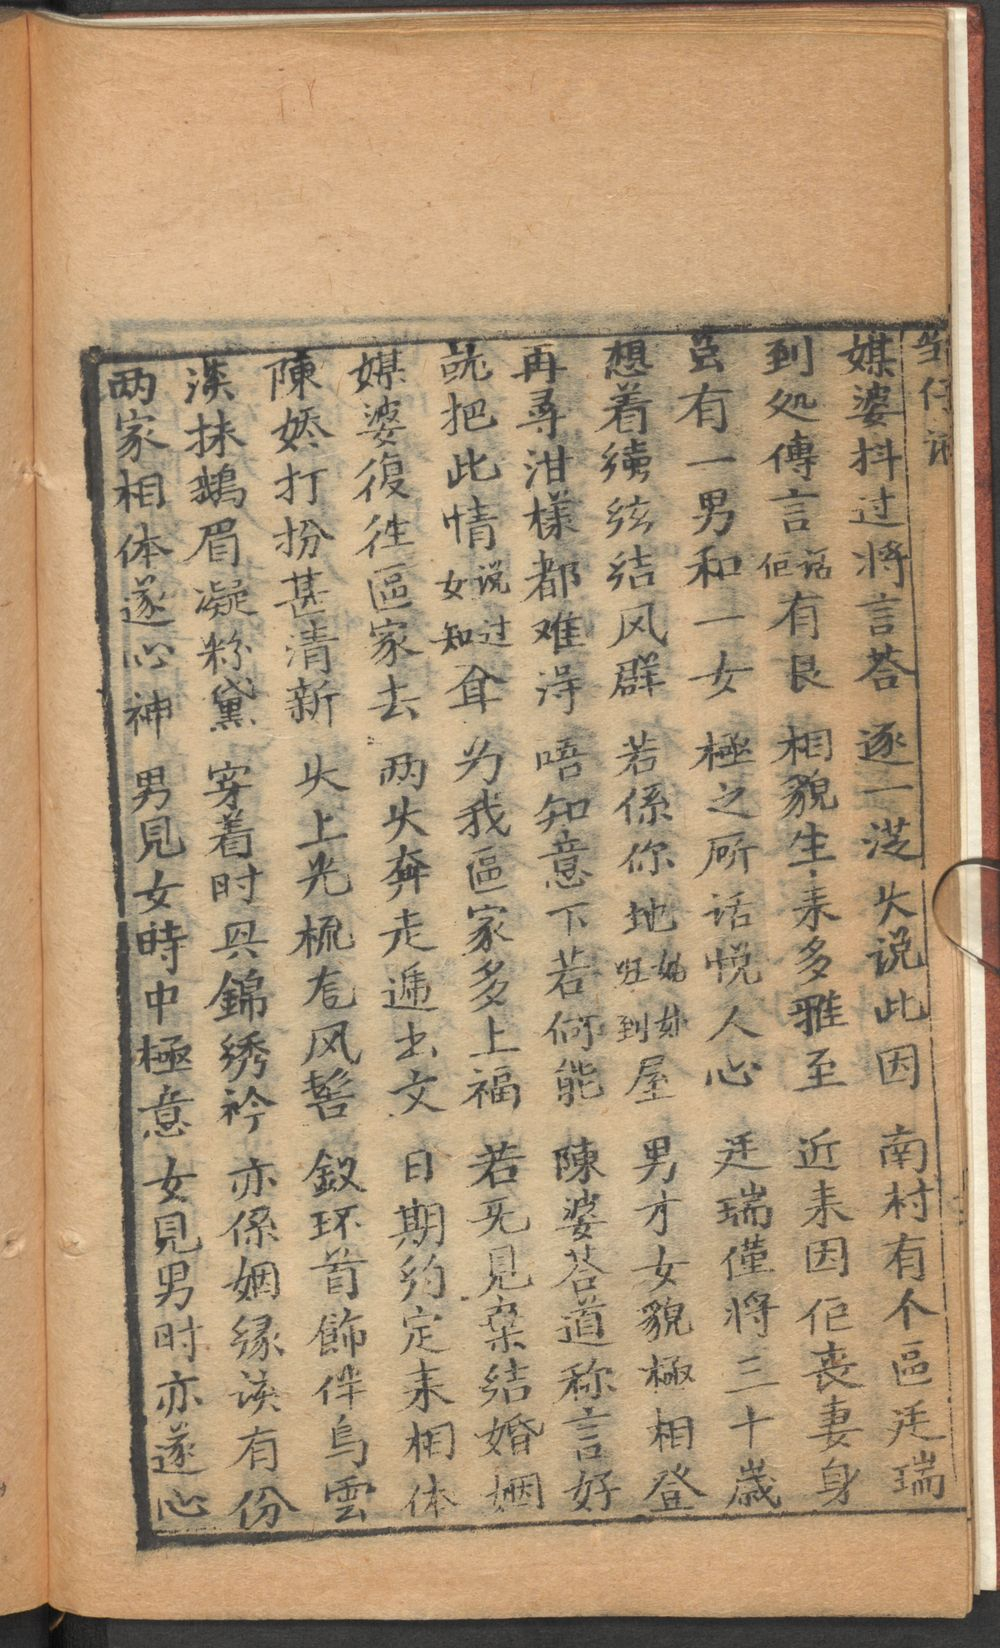 仔
媒婆抖过将言荅 逐一从头说此因 南村有个區廷瑞
到処傳言话佢有艮 相貌生来多雅至 近来因佢丧妻身
虽有一男和一女 極之所话悦人心 廷瑞僅将三十歳
想着续弦结风群 若係你地姊妹旺到屋 男才女貌極相登
再尋泔様都难淂 唔知意下若何能 陳婆荅道称言好
就把此情说过女知耸 为我區家多上福 若旡見棄结婚姻
媒婆復徃區家去 两头奔走逓出文 日期约定来相体
陳娇打扮甚清新 头上光梳龙风髻 釵环首飾伴烏雲
淡抹鵝眉凝粉黛 穿着时兴錦绣衿 亦係姻缘该有份
两家相体遂心神 男見女時中極意 女見男时亦遂心